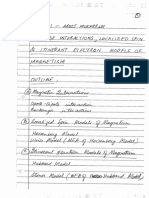 ①
1 - ARGHYA MUKHERJEE
INTERACTIONS, LOCALISED SPIN
& ITINERANT ELECTRON MODELS OF
MAGNETISM
OUTLINE
Magnetic Interactions
interaction
Exchange interaction
Localised Spin Models of Magnetism
Heisenberg Model
Weiss Model (MFT of Heisenberg Model)
Itinerant Electron Models of Magnetism
Hubbard Model
Stoner Model (MFT of Hubbard Model)